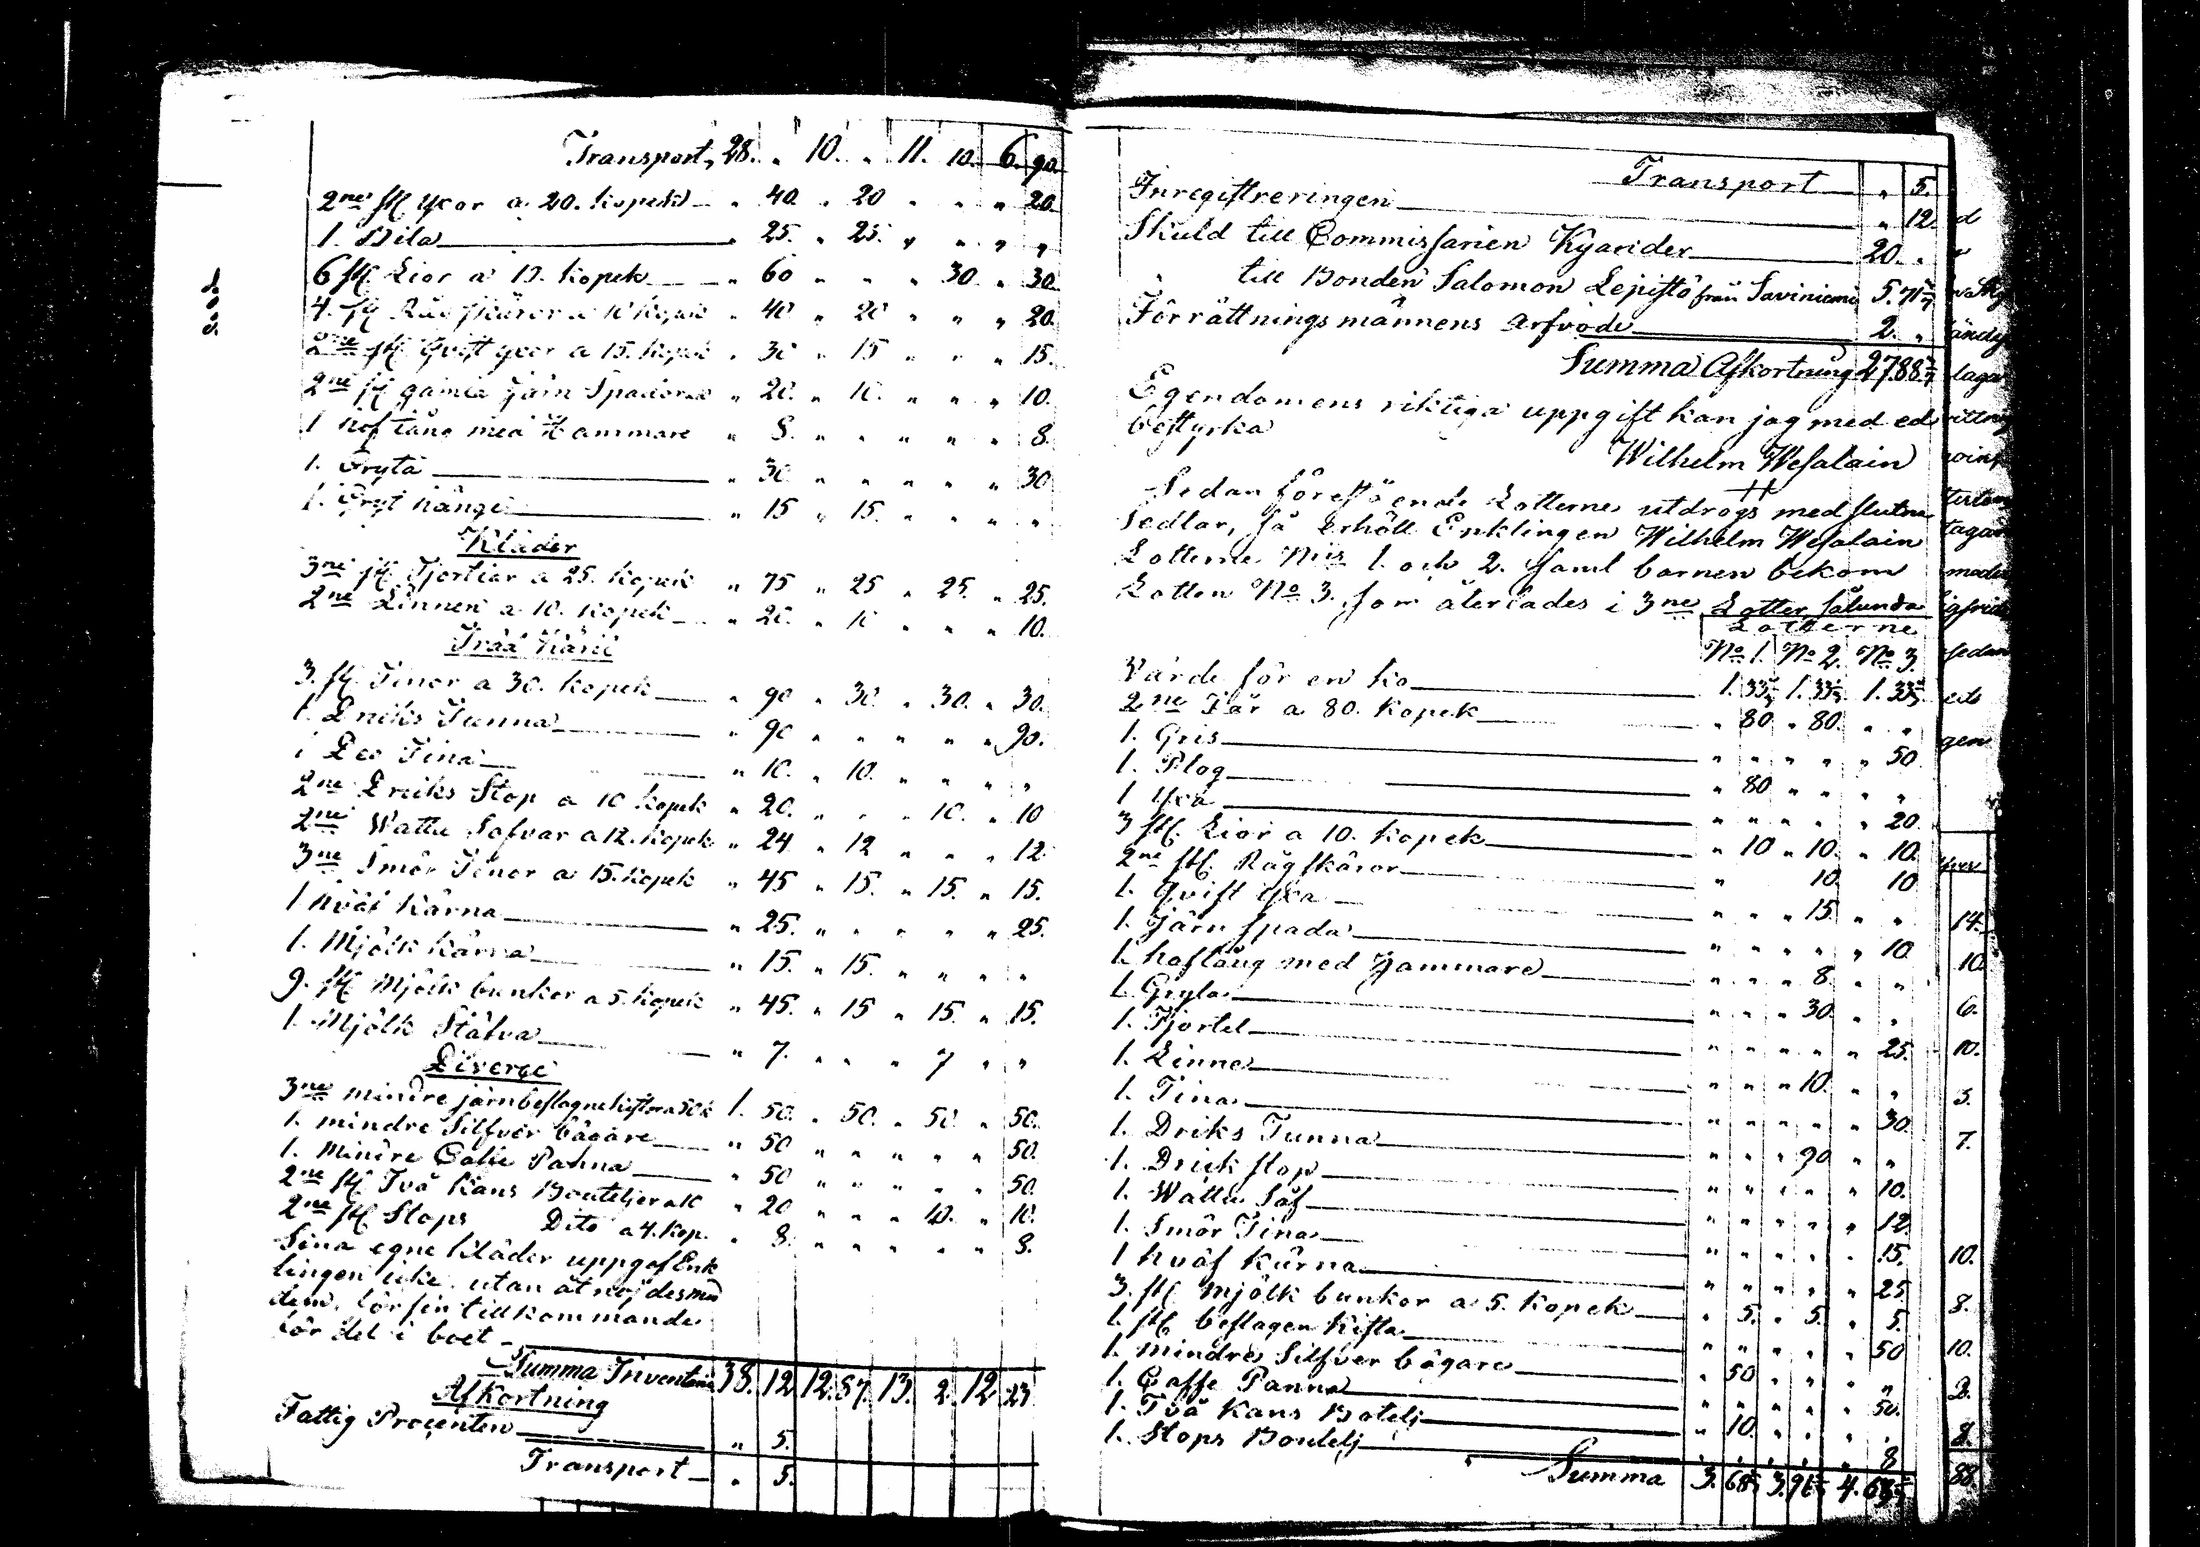 Transport, 28. " 10. " 11. 10. 6. 90.
2ne st yxor a 20. kopek " 40. " 20 " " " 20.
1. Bila " 25. " 25. " " " "
6 st Lior a 10. kopek " 60 " " " 30 " 30.
4. st Råg skäror a 10 kopek " 40 " 20 " " " 20.
2ne st Qvist yxor a 15. kopek " 30 " 15 " " " 15.
2ne st gamla Järn Spador " 20. " 10. " " " 10.
1 Hof tång med Hammare " 8. " " " " " 8.
1. Gryta " 30 " " " " " 30
1. Gryt hänge " 15 " 15. " " " "
Kläder
3ne st Tjortlar a 25. kopek " 75 " 25 " 25. " 25.
2ne Linnen a 10. kopek " 20. " 10 " " " 10.
Träd Käril
3. st Tinor a 30. kopek " 90 " 30 " 30. " 30.
1. Driks Tunna " 90 " " " " " 90.
1 Tina " 10. " 10. " " " "
2ne Driks Stop a 10 kopek " 20. " " " 10. " 10
2ne Wattu Söfvar a 12. kopek " 24 " 12 " " " 12.
3ne Smör Tinor a 15. kopek " 45 " 15. " 15. " 15.
1 hväf Kärna " 25. " " " " " 25.
1. Mjölk Kärna " 15. " 15. " " " "
9. st Mjölk bunkor a 5. kopek " 45. " 15 " 15. " 15.
1. Mjölk Stätva " 7. " " " 7 " "
Diverse
3ne mindre järnbeslagne kistor a 50 k 1. 50. " 50. " 50. " 50.
1. mindre Silfver bägare " 50 " " " " " 50.
1. Mindre Caffe Panna " 50 " " " " " 50.
2ne st Två Kans Bouteljer a 10 " 20 " " " 10. " 10.
2ne st Stops Dito a 4. kop. " 8. " " " " " 8.
Sina egne Kläder uppgaf Enk
lingen icke. utan åtnöjdes med
dem. för sin tillkommande
för del i boet
Summa Inventarii 38. 12 12. 87. 13. 2. 12 23
Afkortning
Fattig Procenten " 5.
Transport " 5.
Transport " 5.
Inregistreringen " 12.
Skuld till Commissarien Kyander 20. "
till Bonden Salomon Lepistö från Saviniemi 5. 71
Förrättnings männens arfvode 2. "
Summa Afkortning 27. 88.
Egendomens riktiga uppgift kan jag med ed
bestyrka
Wilhelm Wesalain
Sedan förestående Lotterne utdrogs med slutna
Sedlar, så erhöll Enklingen Wilhelm Wesalain
Lotterne Nris 1. och 2. samt barnen bekom
Lotten No 3. som återlades i 3ne Lotter sålunda
Lotterne
No 1. No 2. No 3.
Värde för en ko 1. 33 1. 33 1. 33
2ne Får a 80. kopek " 80. " 80. " "
1. Gris " " " " " 50
1. Plog " 80 " " " "
1 Yxa " " " " " 20.
3 st. Lior a 10. kopek " 10 " 10. " 10.
2ne st. Råg skäror " 10. 10
1. Qvist Yxa " " " 15 " "
1. Järn spada " " " " " 10
1. hoftång med Hammare " " " 8. " "
1. Gryta " " " 30. " "
1. Tjortel " " " " " 25.
1. Linne " " " 10. " "
1. Tina " " " " " 30.
1. Driks Tunna " " " 90 " "
1. Drick stop " " " " " 10.
1. Wattu Såf " " " " " 12
1. Smör Tina " " " " " 15.
1 hväf Kärna " " " " " 25
3. st Mjölk bunkor a 5. kopek " 5. " 5. " 5.
1. st beslagen Kista " " " " " 50
1. mindre Silfver bägare " 50 " " " "
1. Caffe Panna " " " " " 50.
1. Två Kans Botelj " 10. " " " "
1. Stops Boutelj " " " " " 8
Summa 3. 68 3. 91 4. 68